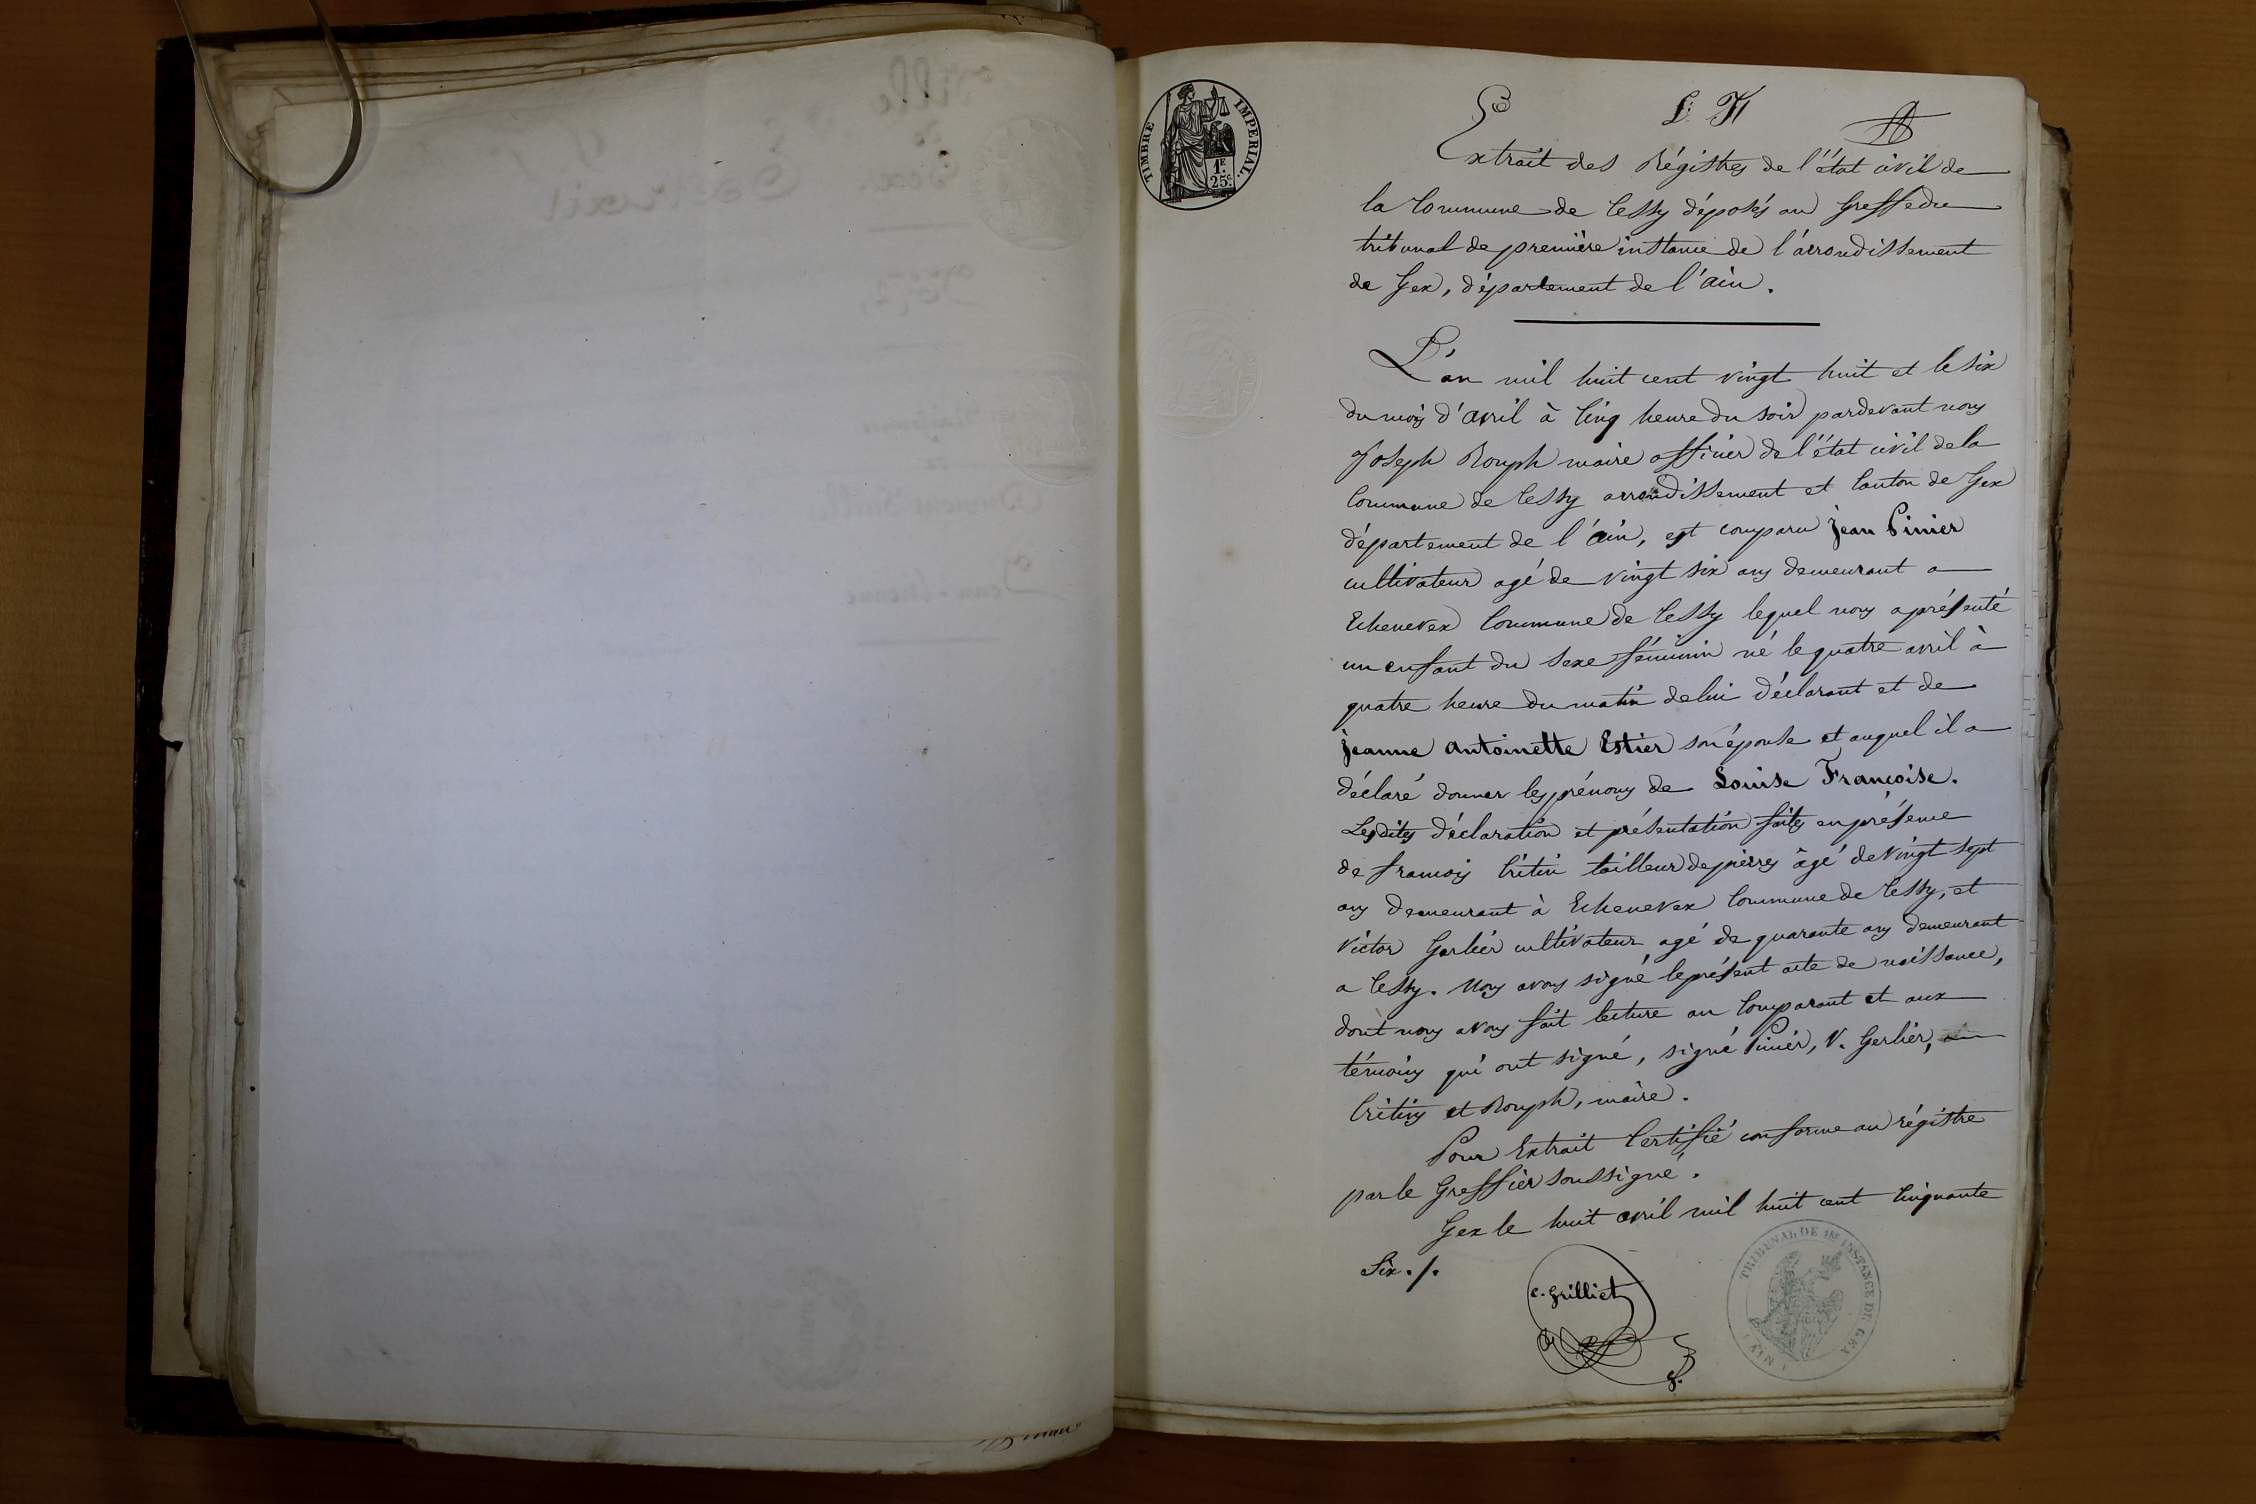 TIMBRE IMPERIAL.
1F.
25c
Extrait des Régistres de l'état civil de
la Commune de Cessy déposés au Greffe du
tribunal de première instance de l'arrondissement
de Gex, département de l'ain.
L'an mil huit cent vingt huit et le six
du mois d'avril à cinq heure du soir pardevant nous
Joseph Rouph maire officier de l'état civil de la
Commune de Cessy arrondissement et Canton de Gex
département de l'ain, est comparu Jean Pinier
cultivateur agé de vingt six ans demeurant a
Echenevex Commune de Cessy lequel nous a présenté
un enfant du sexe féminin né le quatre avril à
quatre heure du matin de lui déclarant et de
jeanne antoinette Estier son épouse et auquel il a
déclaré donner les prénoms de Louise Françoise.
Lesdites déclaration et présentation faites en présence
de francois Critin tailleur de pierres âgé de vingt sept
ans demeurant à Echenevex Commune de Cessy, et
Victor Gerlier cultivateur agé de quarante ans demeurant
a Cessy. Nous avons signé le présent acte de naissance,
dont nous avons fait lecture au Comparant et aux
témoins qui ont signé, signé Pinier, V. Gerlier,
Critin et Rouph, maire.
Pour Extrait Certifié conforme au régistre
par le Greffier soussigné.
Gex le huit avril mil huit cent Cinquante
Six ./.
c. Grilliet
TRIBUNAL DE 1RE INSTANCE DE GEX
(AIN)